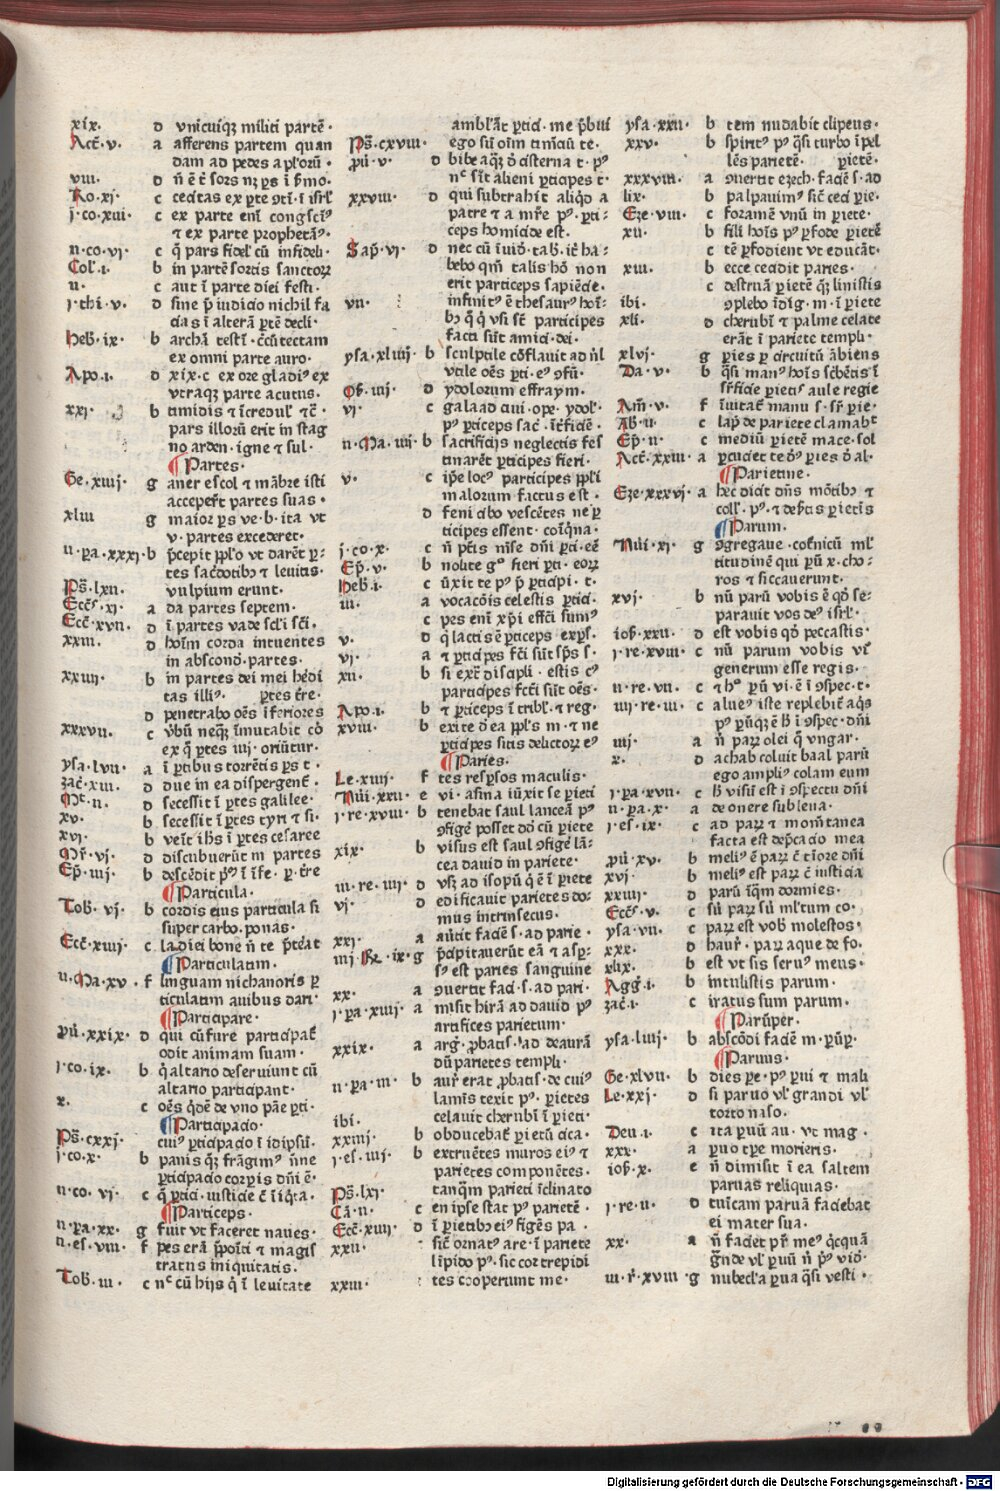 xix. d vnicuiqȝ militi partē.
Act̄.v. a afferens partem quan
dam ad pedes aplorū.
viii.
Ro.xi. c cecitas ex ꝑte
i.co.xii. c ex parte
⁊ ex parte prophetās.
ii.co.vi. c q̄ pars fidel' cū infideli.
Col'.i. b in partē sortis sanctoꝝ
ii. c aut ī parte diei festi.
i.thi.v. d sine p̄iudicio nichil fa
cias ī alterā ꝑtē decli.
Heb̄.ix. b archā testī. c̄cūtectam
ex omni parte auro.
Apo.i. d xix.c ex ore gladiꝰ ex
vtraqȝ parte acutus.
xxi. b timidis ⁊ īcredul' ⁊c̄.
pars illorū erit in stag
no arden.igne ⁊ sul.
¶Partes.
Ge.xiiij. g aner escol ⁊ mābre isti
acceper̄t partes suas.
xliii g maior ꝑs ve.b.ita vt
v.partes excederet.
ii.pa.xxxi. b p̄cepit pplo vt darēt ꝑ-
tes sac̄dotibȝ ⁊ leuitis.
Ps̄.lxii. vulpium erunt.
Ecc̄s.xi. a da partes septem.
Ecc̄.xvii. d ī partes vade scl'i sc̄i.
xxiii. d hoīm corda intuentes
in abscond̄.partes.
xxiiij. b in partes dei mei hēdi
tas illiꝰ. ꝑtes t̄re.
d penetrabo oēs īferiores
xxxvii. c v̄bū neqȝ īmutabit cō
ex q̄ ꝑtes iiij.oriūtur.
ysa.lvii. a ī ꝑtibus torrētis ꝑs t.
zac̄.xiii. d due in ea dispergent̄.
Mt̄.ii. d secessit ī ꝑtes galilee.
xv. b secessit ī ꝑtes tyri ⁊ si.
xvi. b veīt ih̄s ī ꝑtes cesaree
Mr̄.vi. d discubuerūt in partes
Ep̄.iiij. b descēdit pꝰ ī īfe.ꝑ.t̄re
¶Particula.
Tob̄.vi. b cordis eius particula si
super carbo.ponas.
Ecc̄.xiiij. c la diei bone n̄ te p̄t̄eat
¶Particulatim.
ii.Ma.xv. f linguam nichanoris ꝑ
ticulatim auibus dari.
¶Participare.
pū.xxix. d qui cū fure participat̄
odit animam suam.
i.co.ix. b q̄ altario deseruiunt cū
altario participant.
x. c oēs q̄dē de vno pāe ꝑti.
¶Participacio.
Ps̄.cxxi. cuiꝰ ꝑticipacio ī idipsū.
i.co.x. b panis q̄ȝ frāgimꝰ n̄ne
ꝑticipacio corpis dn̄i ē.
ii.co.vi. c q̄ ꝑtici.iusticie c̄ īiq̄ta.
¶Particeps.
ii.pa.xx. g fuit vt faceret naues.
ii.es.viii. f pes erā p̄poīti ⁊ magis
tratus iniquitatis.
Tob̄.iii. c nᶜ cū hijs q̄ ī leuitate
ambl'āt ꝑtici.me p̄bui
Ps̄.cxviii. ego sū oīm timēciū te.
pū.v. d bibe aq̄ȝ d̄ cisterna t.pꝰ
nᶜ sīt alieni ꝑticipes t.
xxviii. d qui subtrahit aliqd̄ a
patre ⁊ a mr̄e pꝰ.ꝑti-
ceps homicide est.
Sap̄.vi. d nec cū īuid̄.tab̄.it̄ hā-
bebo qm̄ talis hō non
erit particeps sapiēcie.
vii. infinitꝰ ē thesaurꝰ hoī-
bȝ q̄ q̄ vsi st̄ participes
facti sūt amici.dei.
ysa.xliiij. b sculptile cōflauit ad nl'
vtile oēs ꝑti.eꝰ ꝯfū.
Os̄.iiij. d ydolorum effraym.
vi. c galaad ciui.ope.ydol'.
pꝰ ꝑticeps sac̄.īt̄ficiē.
ii.Ma.iiij. b sacrificijs neglectis fes
tinarēt ꝑticipes fieri.
v. c ip̄e locꝰ participes pp̄li
malorum factus est.
d feni cibo vescētes ne ꝑ
ticipes essent.coīq̄na.
i.co.x. c n̄ pt̄is mēse dn̄i ꝑti.eē
Ep̄.v. b nolite gᵒ fieri ꝑti.eoꝝ
Heb̄.i. c ūxit te pꝰ p̄ ꝑticipi.t.
iii. a vocacōis celestis ꝑtici.
c pes enī xp̄i effc̄i sumꝰ
v. d q̄ lactis ē ꝑticeps exps̄.
vi. a ⁊ ꝑticipes fc̄i sūt sp̄s s.
xii. b si ext̄ discipli.estis cꝰ
participes fc̄ti sūt oēs.
Apo.i. b ⁊ ꝑticeps ī tribl'.⁊ reg.
xviii. b exite d̄ ea pp̄ls m.⁊ ne
ꝑticipes sitis delictoꝝ eꝰ
¶Paries.
Le.xiiij. f tes resp̄sos maculis.
Nūi.xxii. e vi.asina iūxit se pieti
i.re.xviii. b tenebat saul lanceā pꝰ
ꝯfigē posset dd̄ cū ꝑiete
xix. b visus est saul ꝯfigē lā-
cea dauid in pariete.
iii.re.iiij. d vsȝ ad isopū q̄ ē ī ꝑiete
vi. d edificauit parietes do-
mus intrinsecus.
xxi. a au̅tit faciē s.ad parie.
iiij.Re.ix. g p̄cipitauerūt eā ⁊ asp̄-
sꝰ est paries sanguine
xx. a ꝯuertit faci.s.ad pari.
i.pa.xiiij. a misit hirā ad dauid pꝰ
artifices parietum.
xxix. a arḡ.ꝓbatis.ad deaurā
dū parietes templi.
ii.pa.iii. b aur̄ erat ꝓbatis.de cuiꝰ
lamīs texit pꝰ.ꝑietes
ibi. celauit cherubī ī ꝑieti.
xxiiij. b obducebat̄ ꝑietū cica.
i.es.iiij. b extruētes muros eiꝰ ⁊
parietes componētes.
Ps̄.lxi. tanq̄m parieti īclinato
Cā.ii. c en ipse stat pꝰ parietē.
Ecc̄.xiiij. d ī ꝑietibȝ eiꝰ figēs pa.
xxii. sic̄ ornatꝰ are.ī pariete
līpido pꝰ.sic cor trepidi
xxiii. tes cooperiunt me.
ysa.xxii. b tem nudabit clipeus.
xxv. b spiritꝰ pꝰ q̄si turbo īpel
lēs parietē. ꝑietē.
xxxviii. a ꝯuertit ezech.faciē s.ad
lix. b palpauimꝰ sic̄ ceci ꝑie.
Eze.viii. c foramē vnū in ꝑiete.
xii. b fili hoīs pꝰ ꝑfode ꝑietē
c tē ꝑfodient vt educāt.
xiii. b ecce cecidit paries.
c destruā ꝑietē q̄ȝ linistis
ibi. ꝯplebo īdig̅.m.ī ꝑiete
xli. d cherubī ⁊ palme celate
erāt ī pariete templi.
xlvi. g ꝑies ꝑ circuitū ābiens
Da.v. b q̄si manꝰ hoīs sc̄bētis ī
ꝑietꝰ aule regie
Am̄.v. f
Ab̄.ii. c lap̄ de pariete clamabᵗ
Ep̄.ii. c mediū ꝑietē mace.sol
Act̄.xxiii. a ꝑcuciet te dꝰ ꝑies d̄ al.
¶Parietine.
Eze.xxxvi. a hec dicit dn̄s mōtibȝ ⁊
coll'.pꝰ.⁊ dep̄tis ꝑietīs
¶Parum.
Nūi.xi. g ꝯgregaue.cotnicū ml'
titudinē qui ꝑū x.cho-
ros ⁊ siccauerunt.
xvi. b nū parū vobis ē qd̄ se-
parauit vos deꝰ isrl'.
iob̄.xxii. d est vobis qd̄ peccastis.
i.re.xviii. c nū parum vobis vl'
generum esse regis.
ii.re.vii. c ⁊ hᵒ ꝑū vi.ē ī ꝯspec.t.
iiij.re.iii. c alueꝰ iste replebit̄ aq̄s
pꝰ ꝑūqȝ ē h̄ ī ꝯspec.dn̄i
iiij. a n̄ paꝝ olei q̄ vngar.
x. d achab coluit baal parū
ego ampliꝰ colam eum
i.pa.xvii. c h̄ visū est ī ꝯspectu dn̄i
ii.pa.x. a de onere subleua.
i.es.ix. c ad paꝝ ⁊ mom̄tanea
facta est dep̄cacio mea
pū.xv. b meliꝰ ē paꝝ c̄ tīore dn̄i
xvi. b meliꝰ est paꝝ c̄ iusticia
xxiiij. d parū īq̄m dormies.
Ecc̄s.v. c sū paꝝ sū ml'tum co.
ysa.vii. c paꝝ est vob̄ molestos.
xxx. d haur̄.paꝝ aque de fo.
xlix. b est vt sis seruꝰ meus.
Agḡ.i. b intulistis parum.
zac̄.i. c iratus sum parum.
¶Parūper.
ysa.liiij. b abscōdi faciē m.ꝑūꝑ.
¶Paruus.
Ge.xlvii. b dies pe.pꝰ ꝑui ⁊ mali
Le.xxi. d si paruo vl' grandi vl'
torto naso.
Deu.i. c ita ꝑuū au.vt mag.
xxx. a ꝑuo tpe morieris.
iob̄.x. e n̄ dimisit ī ea saltem
paruas reliquias.
i.re.ii. d tuīcam paruā faciebat
ei mater sua.
xx. a n̄ faciet pr̄ meꝰ q̄cquā
g̅nde vl' ꝑuū n̄ pꝰ viō.
iii.r̄.xviii. g nubecl'a ꝑua q̄si vesti.
Digitalisierung gefördert durch die Deutsche Forschungsgemeinschaft - DFG